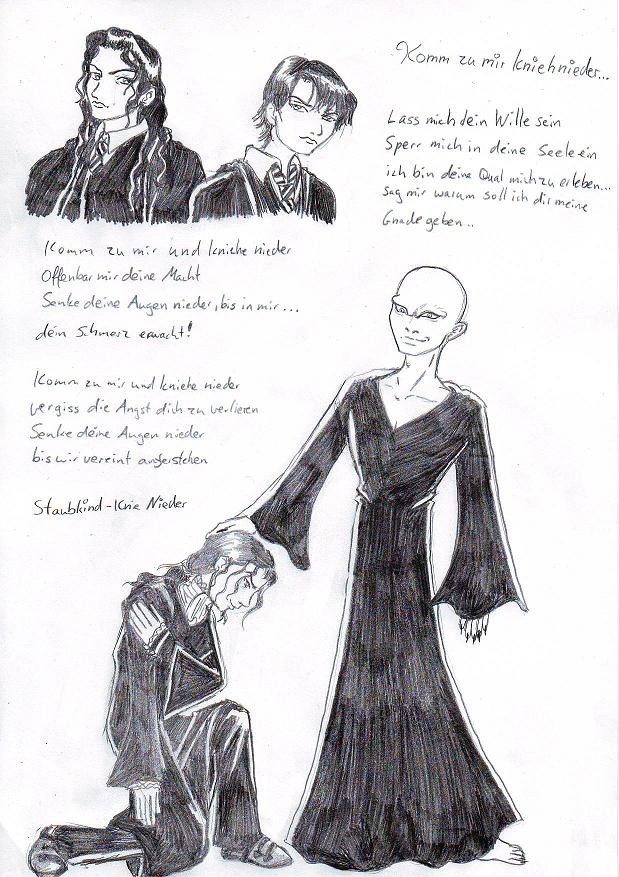 Komm zu mir kniehnieder...
Lass mich dein Wille sein
Sperr mich in deine Seele ein
ich bin deine Qual mich zu erleben...
sag mir warum soll ich dir meine
Gnade geben..
Komm zu mir und kniehe nieder
Offenbar mir deine Macht
Senke deine Augen nieder, bis in mir...
dein Schmerz erwacht!
Komm zu mir und kniehe nieder
vergiss die Angst dich zu verlieren
Senke deine Augen nieder
bis wir vereint auferstehen
Staubkind - Knie Nieder